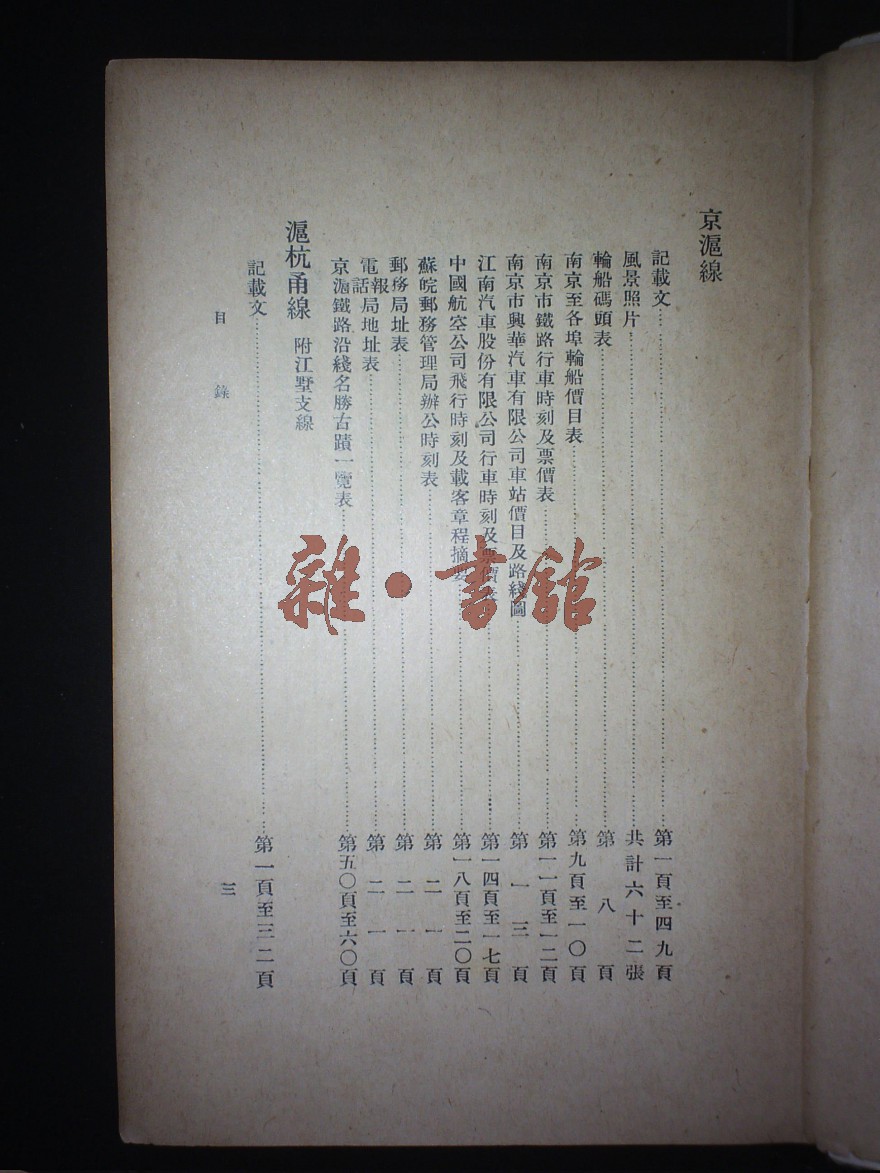 京滬線
記載文……第一頁至四九頁
風景照片……共計六十二張
輪船碼頭表……第八頁
南京至各埠輪船價目表……第九頁至一〇頁
南京市鐵路行車時刻及票價表……第一一頁至一二頁
南京市興華汽車有限公司車站價目及路綫圖……第一三頁
江南汽車股份有限公司行車時刻及票價表……第一四頁至一七頁
中國航空公司飛行時刻及載客章程摘要……第一八頁至二〇頁
蘇皖郵務管理局辦公時刻表……第二一頁
郵務局址表……第二一頁
電報話局地址表……第二一頁
京滬鐵路沿綫名勝古蹟一覽表……第五〇頁至六〇頁
滬杭甬線 附江墅支線
記載文……第一頁至三二頁
目錄
三
雜·書館